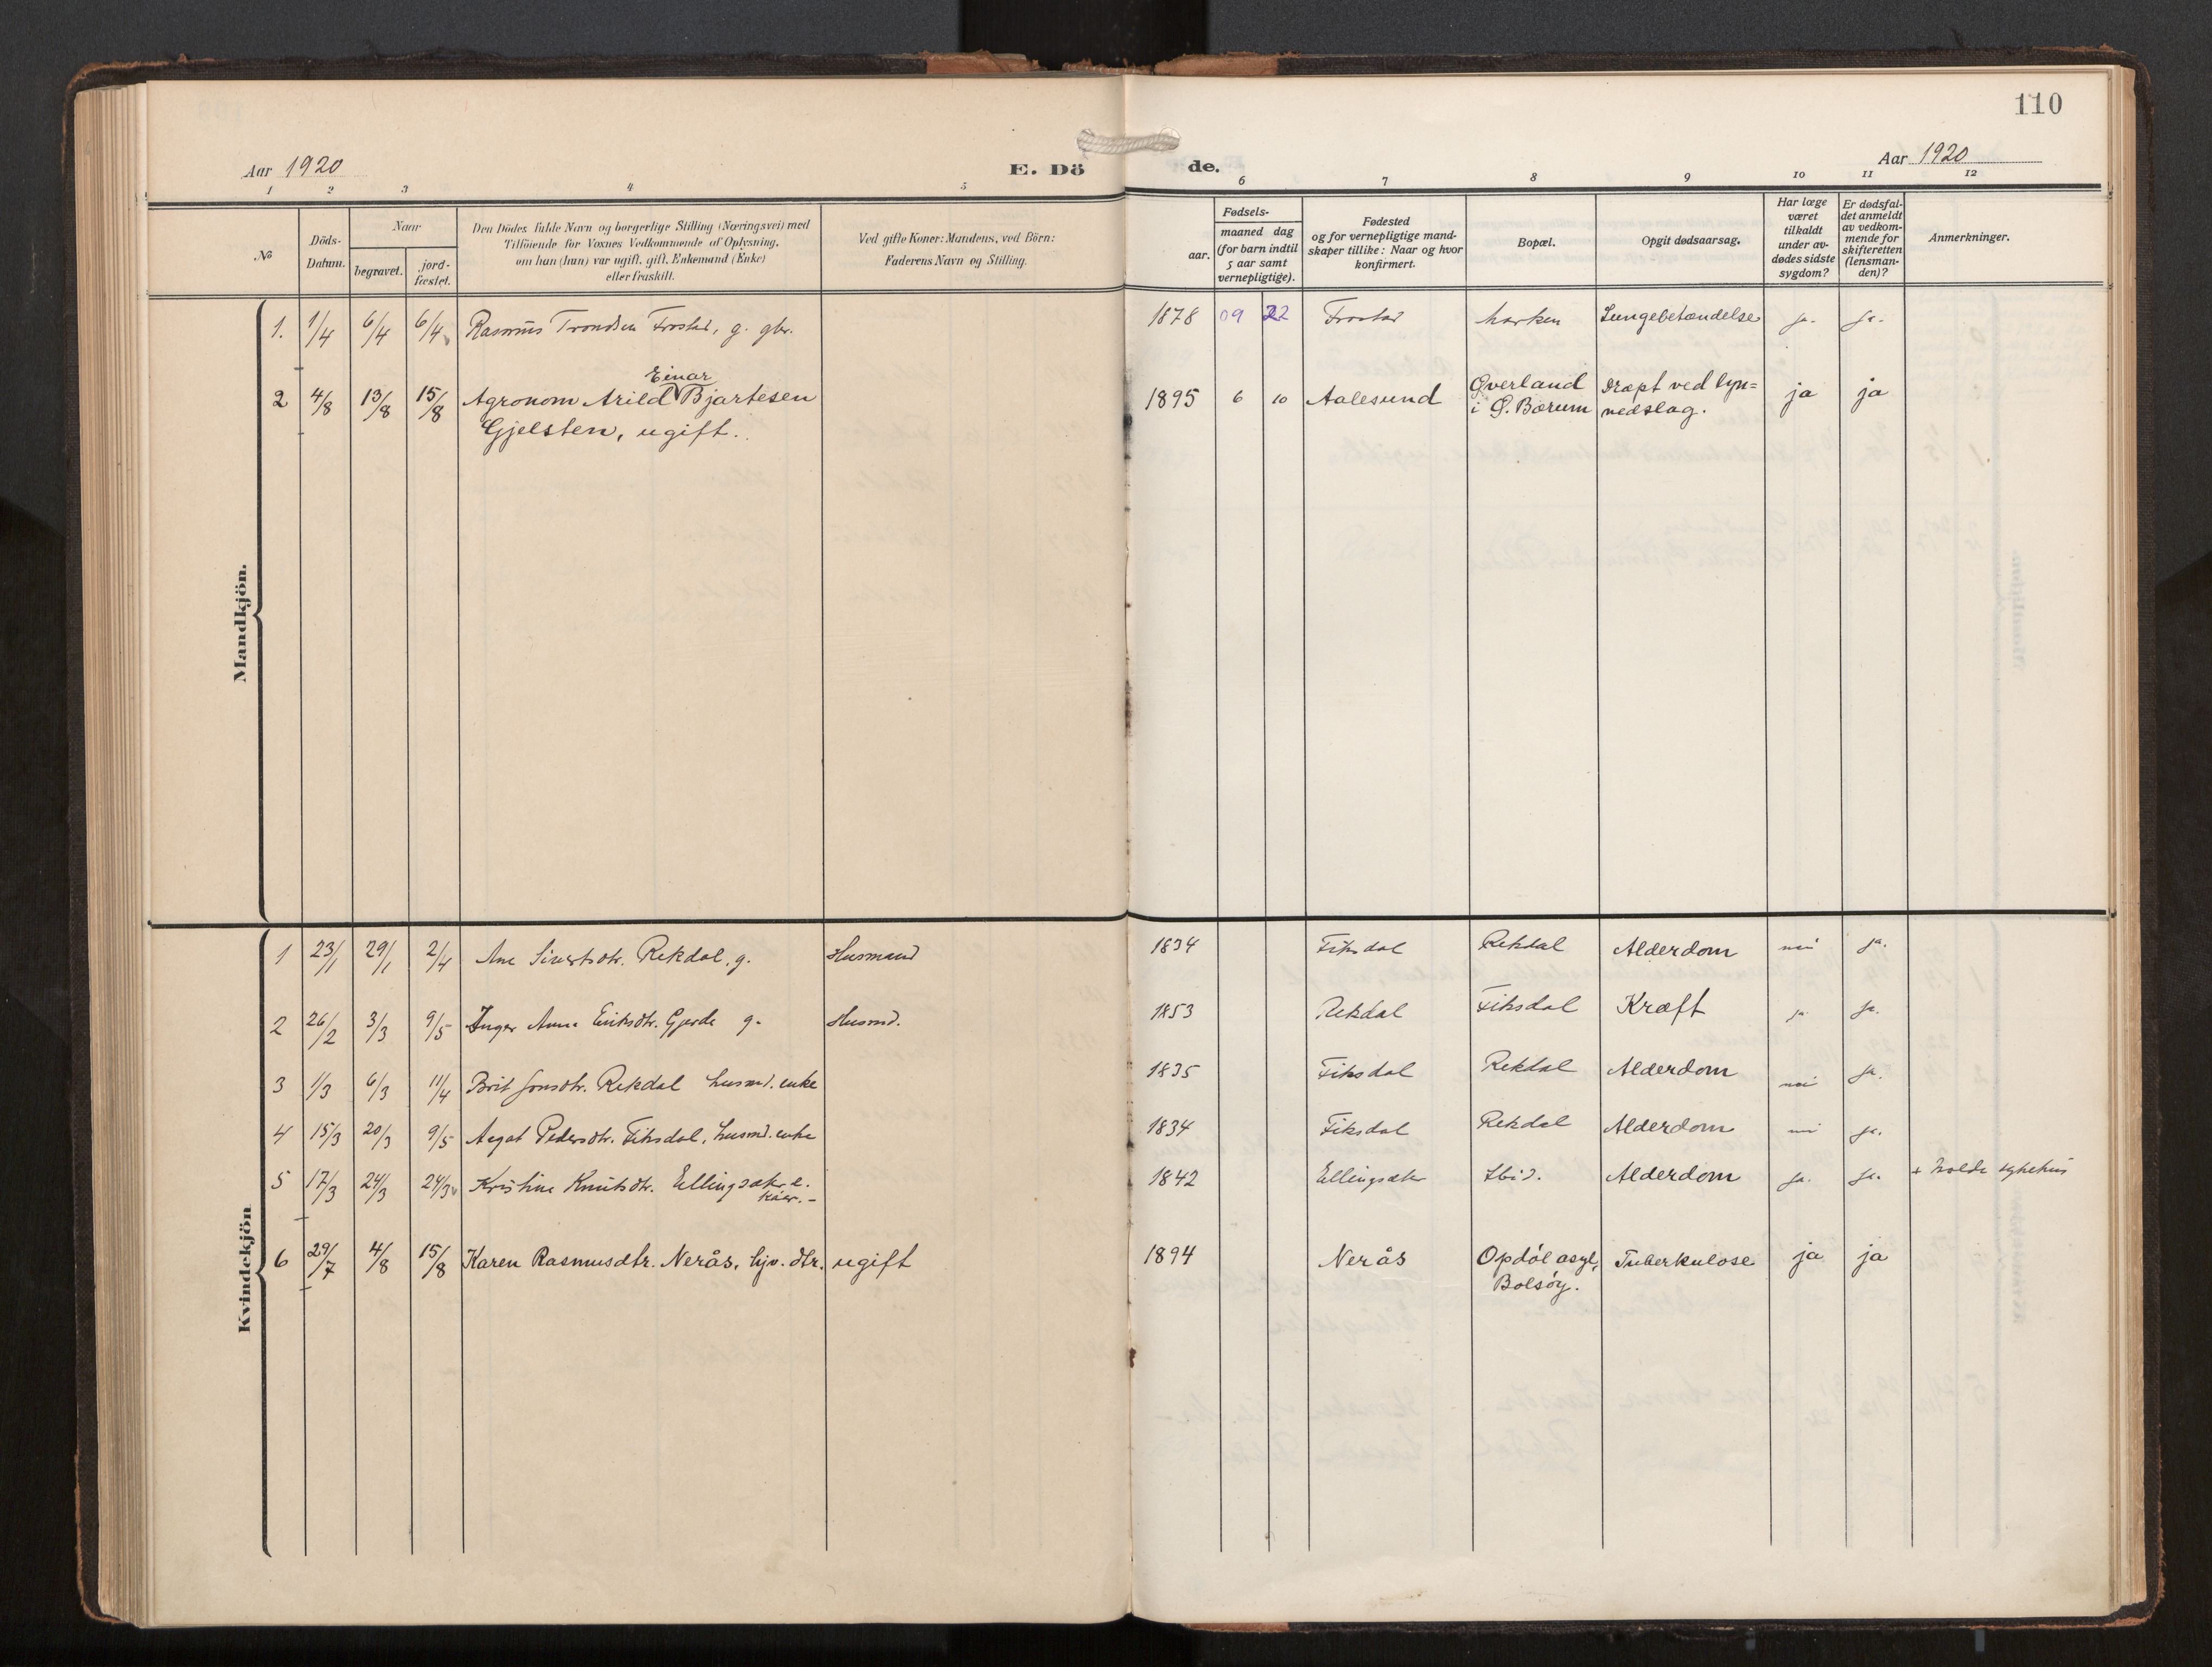 110
Aar 1920
E. Dö
de.
Aar 1920
1 2 3 4 5 6 7 8 9 10 11 12
№
Döds-
Datum.
Naar
begravet.
jord-
fæstet.
Den Dödes fulde Navn og borgerlige Stilling (Næringsvei) med
Tilföiende for Voxnes Vedkommende af Oplysning,
om han (hun) var ugift, gift, Enkemand (Enke)
eller fraskilt.
Ved gifte Koner: Mandens, ved Börn:
Faderens Navn og Stilling.
Fødsels-
aar.
maaned dag
(for barn indtil
5 aar samt
vernepligtige).
Fødested
og for vernepligtige mand-
skaper tillike: Naar og hvor
konfirmert.
Bopæl.
Opgit dødsaarsag.
Har læge
været
tilkaldt
under av-
dødes sidste
sygdom?
Er dødsfal-
det anmeldt
av vedkom-
mende for
skifteretten
(lensman-
den)?
Anmerkninger.
Mandkjön.
1. 1/4 6/4 6/4 Rasmus Trondsen Frostad, g. gbr. 1878 09 22 Frostad Lungebetændelse ja. ja.
Einar
2 4/8 13/8 15/8 Agronom Arild Bjartesen 1895 6 10 Aalesund Øverland Dræpt ved lyn= ja ja
Gjelsten, ugift. i Ø. Bærum nedslag.
Kvindekjön
1 23/1 29/1 2/4 Ane Sivertsdtr. Rekdal, g. Husmand 1834 Fiksdal Rekdal Alderdom nei ja.
2 26/2 3/3 9/5 Inger Anna Eriksdtr. Gjerde g. Husmd. 1853 Rekdal Fiksdal Kræft ja. ja.
3 1/3 6/3 11/4 Brit Jonsdtr. Rekdal husmd. enke 1835 Fiksdal Rekdal Alderdom nei ja.
4 15/3 20/3 9/5 Aagot Pedersdtr. Fiksdal, husmd. enke 1834 Fiksdal Rekdal Alderdom nei ja.
5 17/3 24/3 24/3 Kristine Knutsdtr. Ellingsæter e. 1842 Ellingsæter Ibid. Alderdom ja. ja. + Molde sykehus
kaar.-
6 29/7 4/8 15/8 Karen Rasmusdtr. Nerås, hjv. dtr. ugift 1894 Nerås Opdøl asyl, Tuberkulose ja ja
Bolsøy.